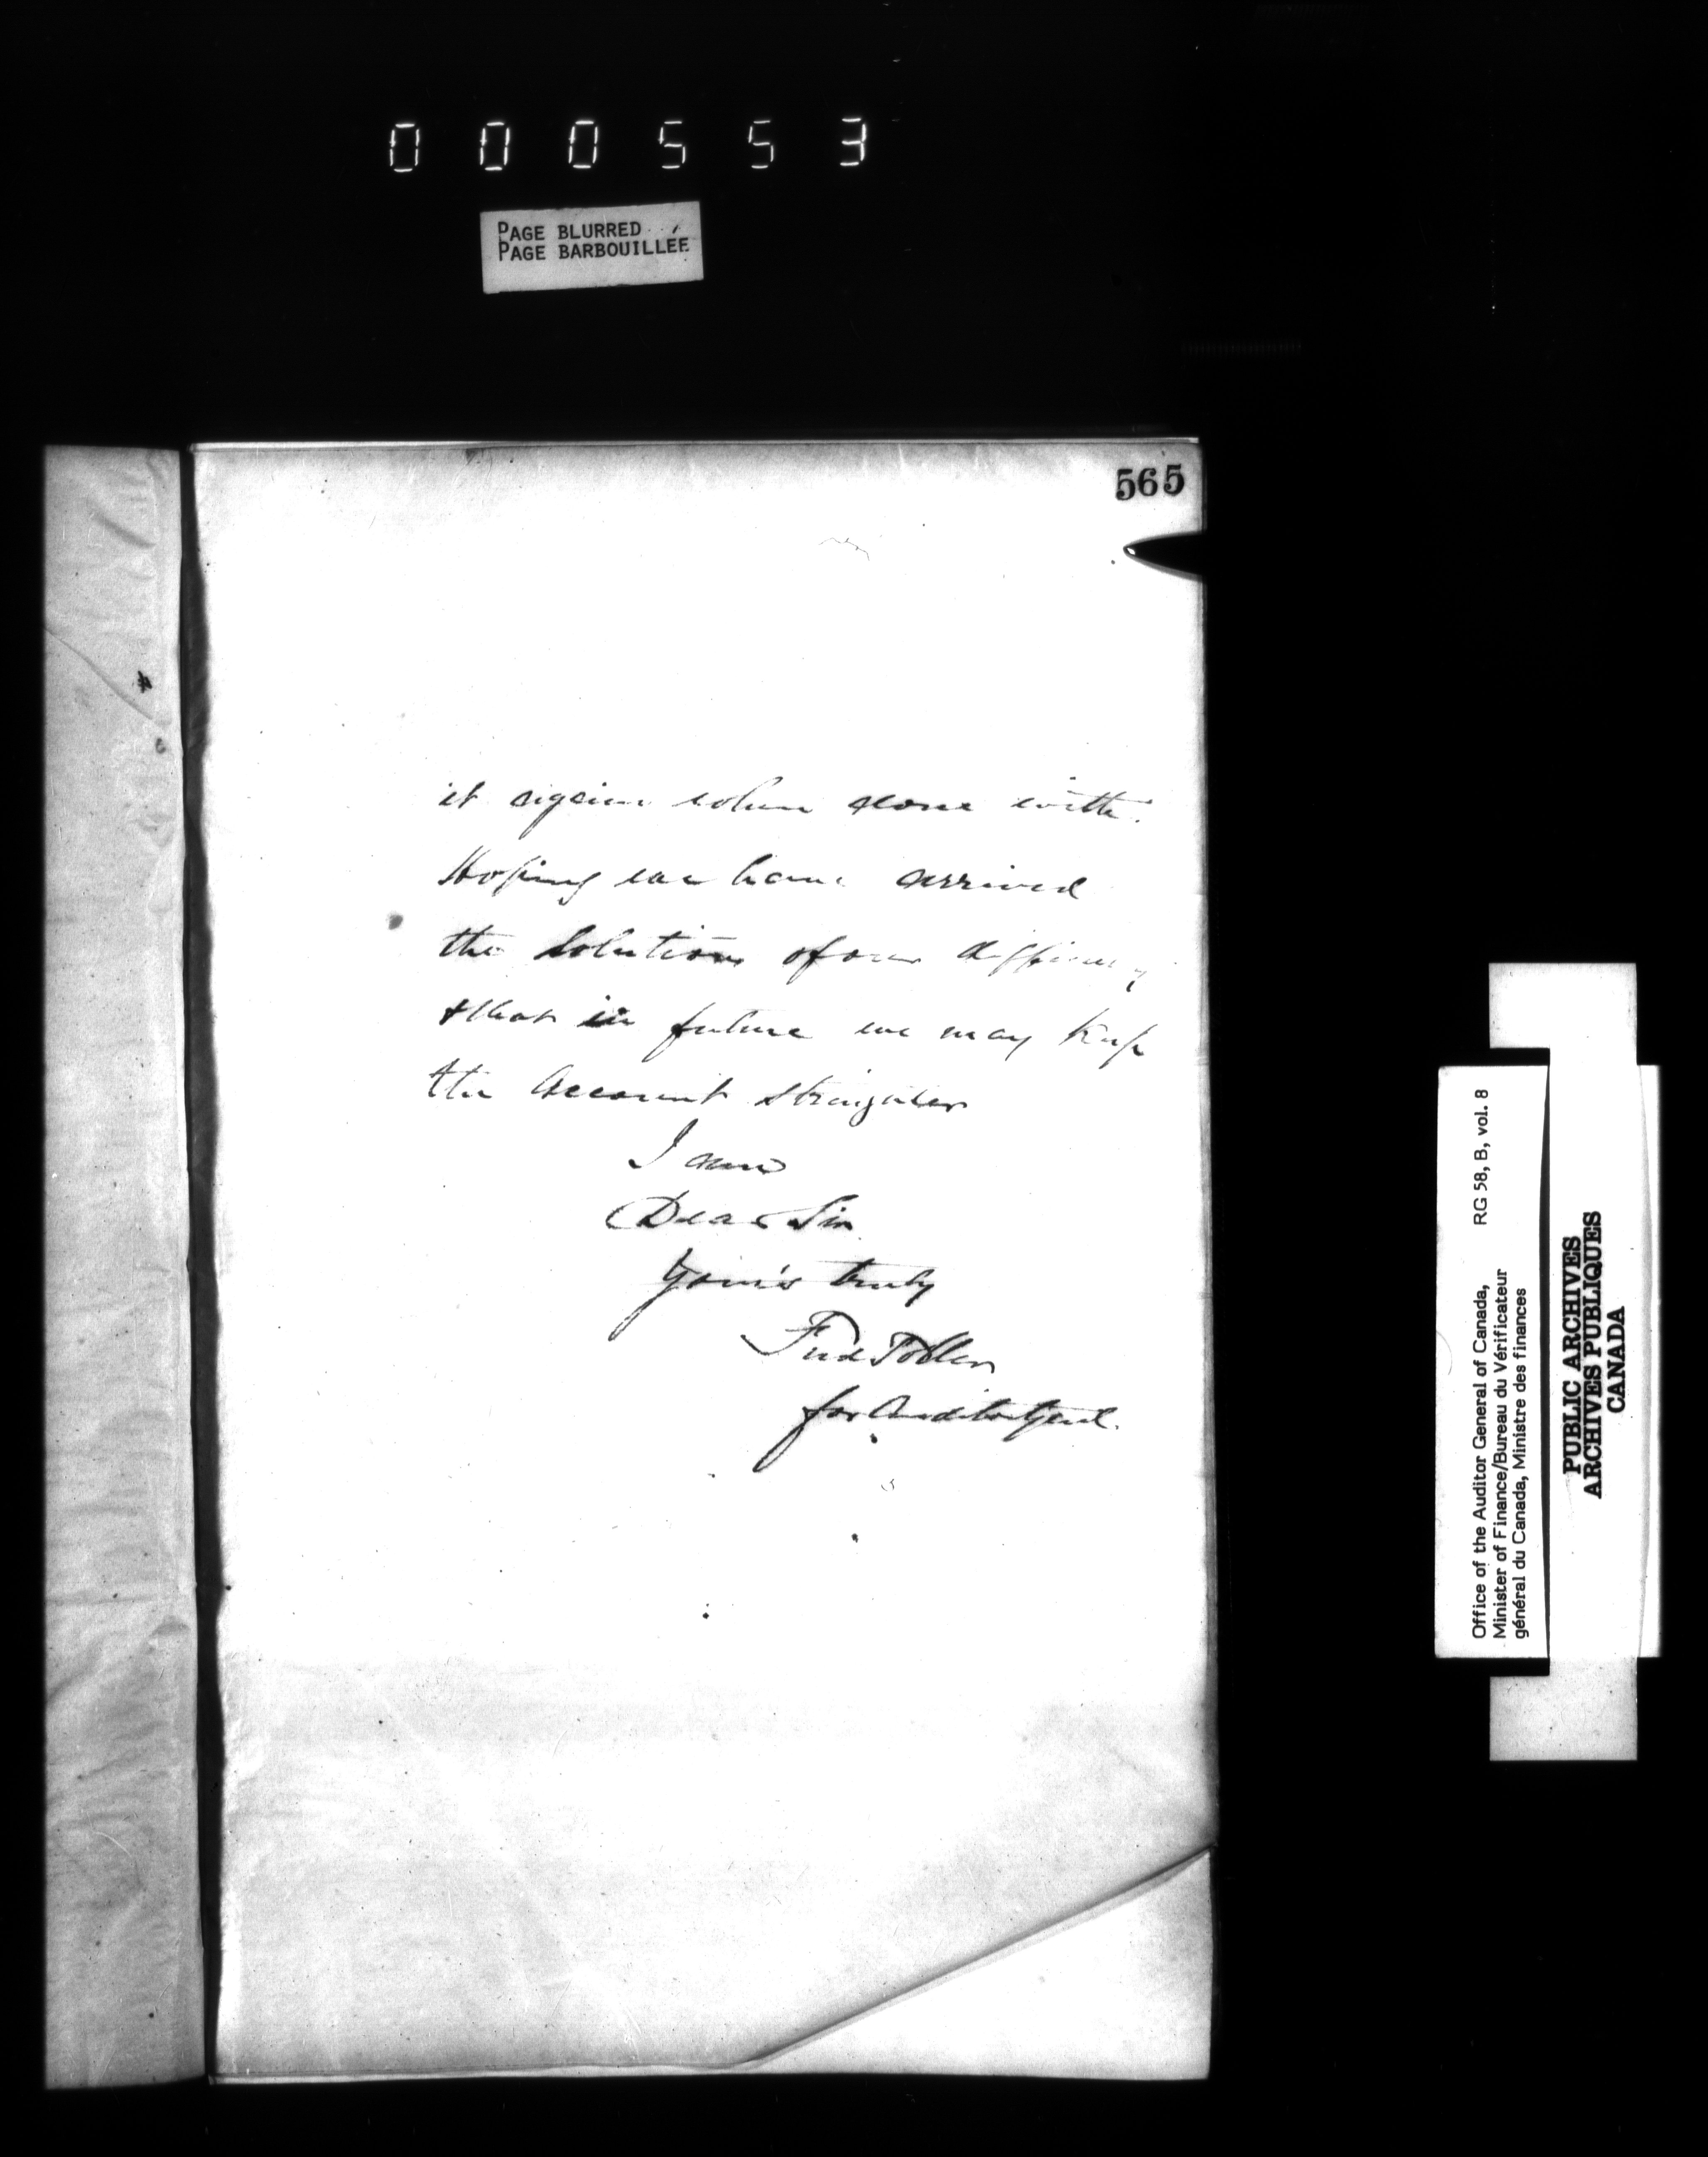 000553
PAGE BLURRED
PAGE BARBOUILLÉE
565
it again when done with.
Hoping we have arrived
the Solution of our difficulty
& that in future we may keep
the Account straighter
I am
Dear Sir
Yours truly
Fred Toller
for Auditor Genl.
Office of the Auditor General of Canada, RG 58, B, vol. 8
Minister of Finance/Bureau du Vérificateur
général du Canada, Ministre des finances
PUBLIC ARCHIVES
ARCHIVES PUBLIQUES
CANADA